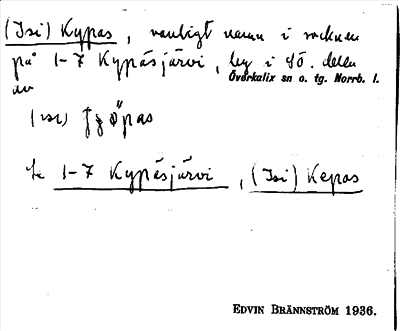 (Isi) Kypas, vanligt namn i socknen
på 1-7 Kypäsjärvi, beg i SÖ. delen
av Överkalix sn o. tg. Norrb. l.
(isi)
Se 1-7 Kypäsjärvi, (Isi) Kepas
EDVIN BRÄNNSTRÖM 1936.